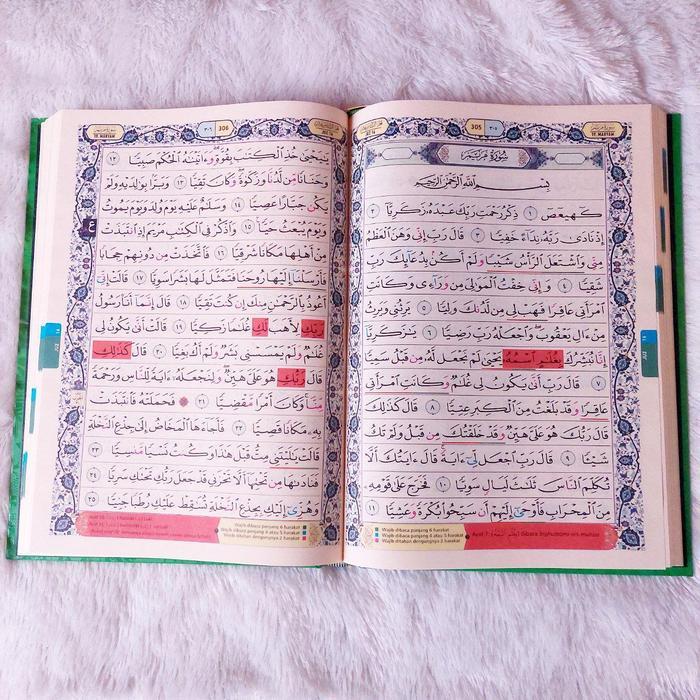 سورة مريم
305
٣٠٥
ST. MARYAM
سُورَةُ مَرْيَمَ
بِسْمِ اللَّهِ الرَّحْمَٰنِ الرَّحِيمِ
كٓهيعٓصٓ ١ ذِكْرُ رَحْمَتِ رَبِّكَ عَبْدَهُۥ زَكَرِيَّآ ٢
إِذْ نَادَىٰ رَبَّهُۥ نِدَآءً خَفِيًّا ٣ قَالَ رَبِّ إِنِّى وَهَنَ ٱلْعَظْمُ
مِنِّى وَٱشْتَعَلَ ٱلرَّأْسُ شَيْبًا وَلَمْ أَكُنۢ بِدُعَآئِكَ رَبِّ
شَقِيًّا ٤ وَإِنِّى خِفْتُ ٱلْمَوَٰلِىَ مِن وَرَآءِى وَكَانَتِ
ٱمْرَأَتِى عَاقِرًا فَهَبْ لِى مِن لَّدُنكَ وَلِيًّا ٥ يَرِثُنِى وَيَرِثُ
مِنْ ءَالِ يَعْقُوبَ ۖ وَٱجْعَلْهُ رَبِّ رَضِيًّا ٦ يَٰزَكَرِيَّآ
إِنَّا نُبَشِّرُكَ بِغُلَٰمٍ ٱسْمُهُۥ يَحْيَىٰ لَمْ نَجْعَل لَّهُۥ مِن قَبْلُ سَمِيًّا
٧ قَالَ رَبِّ أَنَّىٰ يَكُونُ لِى غُلَٰمٌ وَكَانَتِ ٱمْرَأَتِى
عَاقِرًا وَقَدْ بَلَغْتُ مِنَ ٱلْكِبَرِ عِتِيًّا ٨ قَالَ كَذَٰلِكَ
قَالَ رَبُّكَ هُوَ عَلَىَّ هَيِّنٌ وَقَدْ خَلَقْتُكَ مِن قَبْلُ وَلَمْ تَكُ
شَيْـًٔا ٩ قَالَ رَبِّ ٱجْعَل لِّىٓ ءَايَةً ۚ قَالَ ءَايَتُكَ أَلَّا
تُكَلِّمَ ٱلنَّاسَ ثَلَٰثَ لَيَالٍ سَوِيًّا ١٠ فَخَرَجَ عَلَىٰ قَوْمِهِۦ
مِنَ ٱلْمِحْرَابِ فَأَوْحَىٰٓ إِلَيْهِمْ أَن سَبِّحُوا۟ بُكْرَةً وَعَشِيًّا ١١
Wajib dibaca panjang 6 harakat
Wajib dibaca panjang 4 atau 5 harakat
Wajib ditahan dengungnya 2 harakat
سورة مريم
ST. MARYAM
٣٠٦
306
يَٰيَحْيَىٰ خُذِ ٱلْكِتَٰبَ بِقُوَّةٍ ۖ وَءَاتَيْنَٰهُ ٱلْحُكْمَ صَبِيًّا ١٢
وَحَنَانًا مِّن لَّدُنَّا وَزَكَوٰةً ۖ وَكَانَ تَقِيًّا ١٣ وَبَرًّۢا بِوَٰلِدَيْهِ وَلَمْ
يَكُن جَبَّارًا عَصِيًّا ١٤ وَسَلَٰمٌ عَلَيْهِ يَوْمَ وُلِدَ وَيَوْمَ يَمُوتُ
وَيَوْمَ يُبْعَثُ حَيًّا ١٥ وَٱذْكُرْ فِى ٱلْكِتَٰبِ مَرْيَمَ إِذِ ٱنتَبَذَتْ
مِنْ أَهْلِهَا مَكَانًا شَرْقِيًّا ١٦ فَٱتَّخَذَتْ مِن دُونِهِمْ حِجَابًا
فَأَرْسَلْنَآ إِلَيْهَا رُوحَنَا فَتَمَثَّلَ لَهَا بَشَرًا سَوِيًّا ١٧ قَالَتْ إِنِّىٓ
أَعُوذُ بِٱلرَّحْمَٰنِ مِنكَ إِن كُنتَ تَقِيًّا ١٨ قَالَ إِنَّمَآ أَنَا۠ رَسُولُ
رَبِّكِ لِأَهَبَ لَكِ غُلَٰمًا زَكِيًّا ١٩ قَالَتْ أَنَّىٰ يَكُونُ لِى
غُلَٰمٌ وَلَمْ يَمْسَسْنِى بَشَرٌ وَلَمْ أَكُ بَغِيًّا ٢٠ قَالَ كَذَٰلِكِ
قَالَ رَبُّكِ هُوَ عَلَىَّ هَيِّنٌ ۖ وَلِنَجْعَلَهُۥٓ ءَايَةً لِّلنَّاسِ وَرَحْمَةً
مِّنَّا ۚ وَكَانَ أَمْرًا مَّقْضِيًّا ٢١ ۞ فَحَمَلَتْهُ فَٱنتَبَذَتْ
بِهِۦ مَكَانًا قَصِيًّا ٢٢ فَأَجَآءَهَا ٱلْمَخَاضُ إِلَىٰ جِذْعِ ٱلنَّخْلَةِ
قَالَتْ يَٰلَيْتَنِى مِتُّ قَبْلَ هَٰذَا وَكُنتُ نَسْيًا مَّنسِيًّا ٢٣
فَنَادَىٰهَا مِن تَحْتِهَآ أَلَّا تَحْزَنِى قَدْ جَعَلَ رَبُّكِ تَحْتَكِ سَرِيًّا ٢٤
وَهُزِّىٓ إِلَيْكِ بِجِذْعِ ٱلنَّخْلَةِ تُسَٰقِطْ عَلَيْكِ رُطَبًا جَنِيًّا ٢٥
Wajib dibaca panjang 6 harakat
Wajib dibaca panjang 4 atau 5 harakat
Wajib ditahan dengungnya 2 harakat